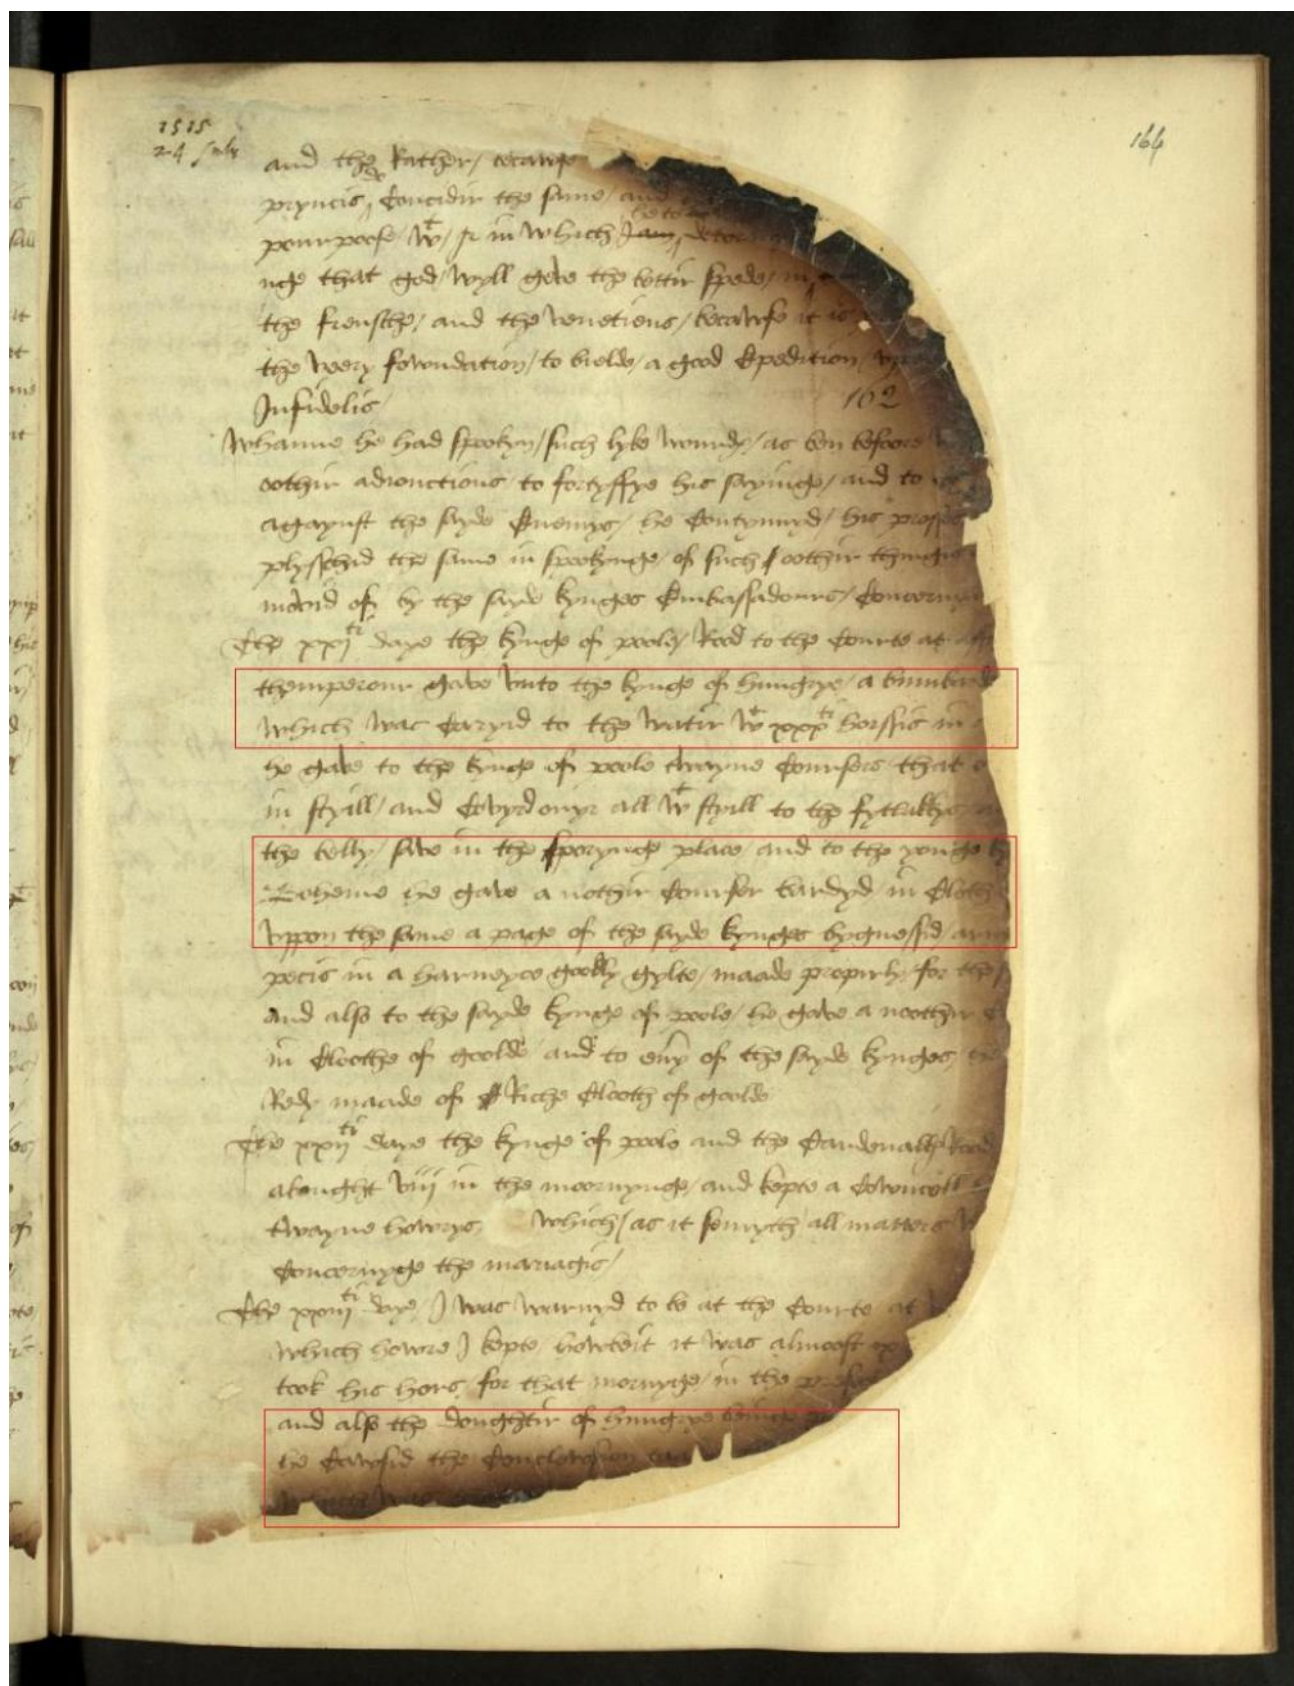 1515
24 July
164
and the Rather / becawse
pryncis, Concidir the same / and
pourpoose / wt / in which I am, he to
nge that god / wyll geve the bettir spede / in
the frensche / and the venetiens / becawse it is
the very fowndation / to bielde / a good Expedition / uppon
Infidelis
162
Whanne he had spookyn / such lyke wourdes / as ben befoore
oothir adionctions to fortyffye his sayinge / and to
agaynst the sayde Enemys / he Contynuyd / his
plysschid the same in spekynge / of such oothir thingis
movid of by the sayde kynges Embassadours / Concernyn
The xxjti daye the kynge of poole / Rood to the Courte at
themperour gave unto the kynge of hungrye / a bumbard
which was Caryid to the watir wt xxxti horssis in
he gave to the kynge of poole twayne Coursers that
in styill / and Covyrd ovyr all wt styill to the fytlakkys
the belly / save in the sporynge place / and to the younge ky
Boheme he gave a nothir Courser bardyd in Cloth
uppon the same a page of the sayde kynges bygnessid arm
pecis in a harneyce goodly gylte / maade propirly for the
and also to the sayde kynge of poole / he gave a noothir
in Cloothe of goolde and to eny of the sayde kynges
Redy maade of Riche Clooth of goolde
The xxijti daye the kynge of poole and the Cardenall Rood
abought viij in the moornynge / and kepte a Cowncell
twayne howrys which / as it semyth all matters
Concernyge the mariagis /
The xxiijti daye / I was warnyd to be at the Courte at
which howre I kepte, howbeit it was almoost
took his hors / for that mornyge / in the
and also the doughtir of hungrye beinge
he Cawsid the Conclewsion
which was